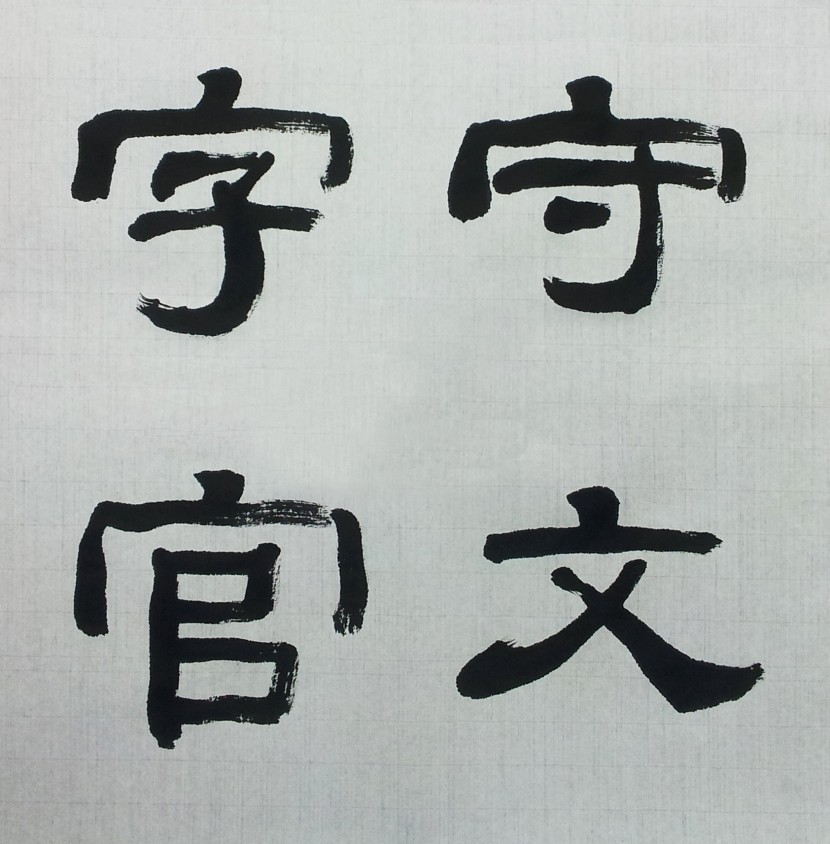 字守
官文